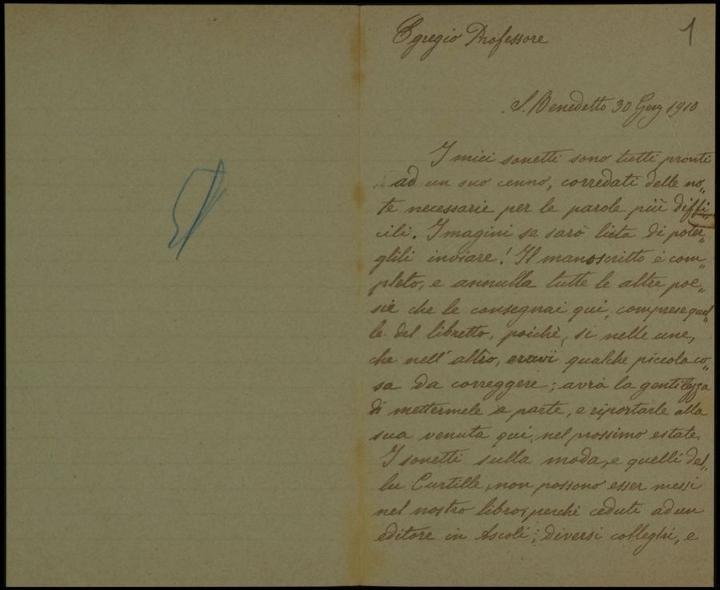 1
Egregio Professore
S. Benedetto 30 Gen 1910
I miei sonetti sono tutti pronti
ad un suo cenno, corredati delle no„
te necessarie per le parole più diffi„
cili. Imagini se sarò lieta di poter„
glili inviare! Il manoscritto è com„
pleto, e annulla tutte le altre poe„
sie che le consegnai qui, comprese quel„
le del libretto, poichè, sì nelle une,
che nell'altro, eravi qualche piccola co„
sa da correggere; avrà la gentilezza
di mettermele a parte, e riportarle alla
sua venuta qui, nel prossimo estate.
I sonetti sulla moda, e quelli del„
lu Curtille, non possono esser messi
nel nostro libro, perchè ceduti ad un
editore in Ascoli; diversi colleghi, e